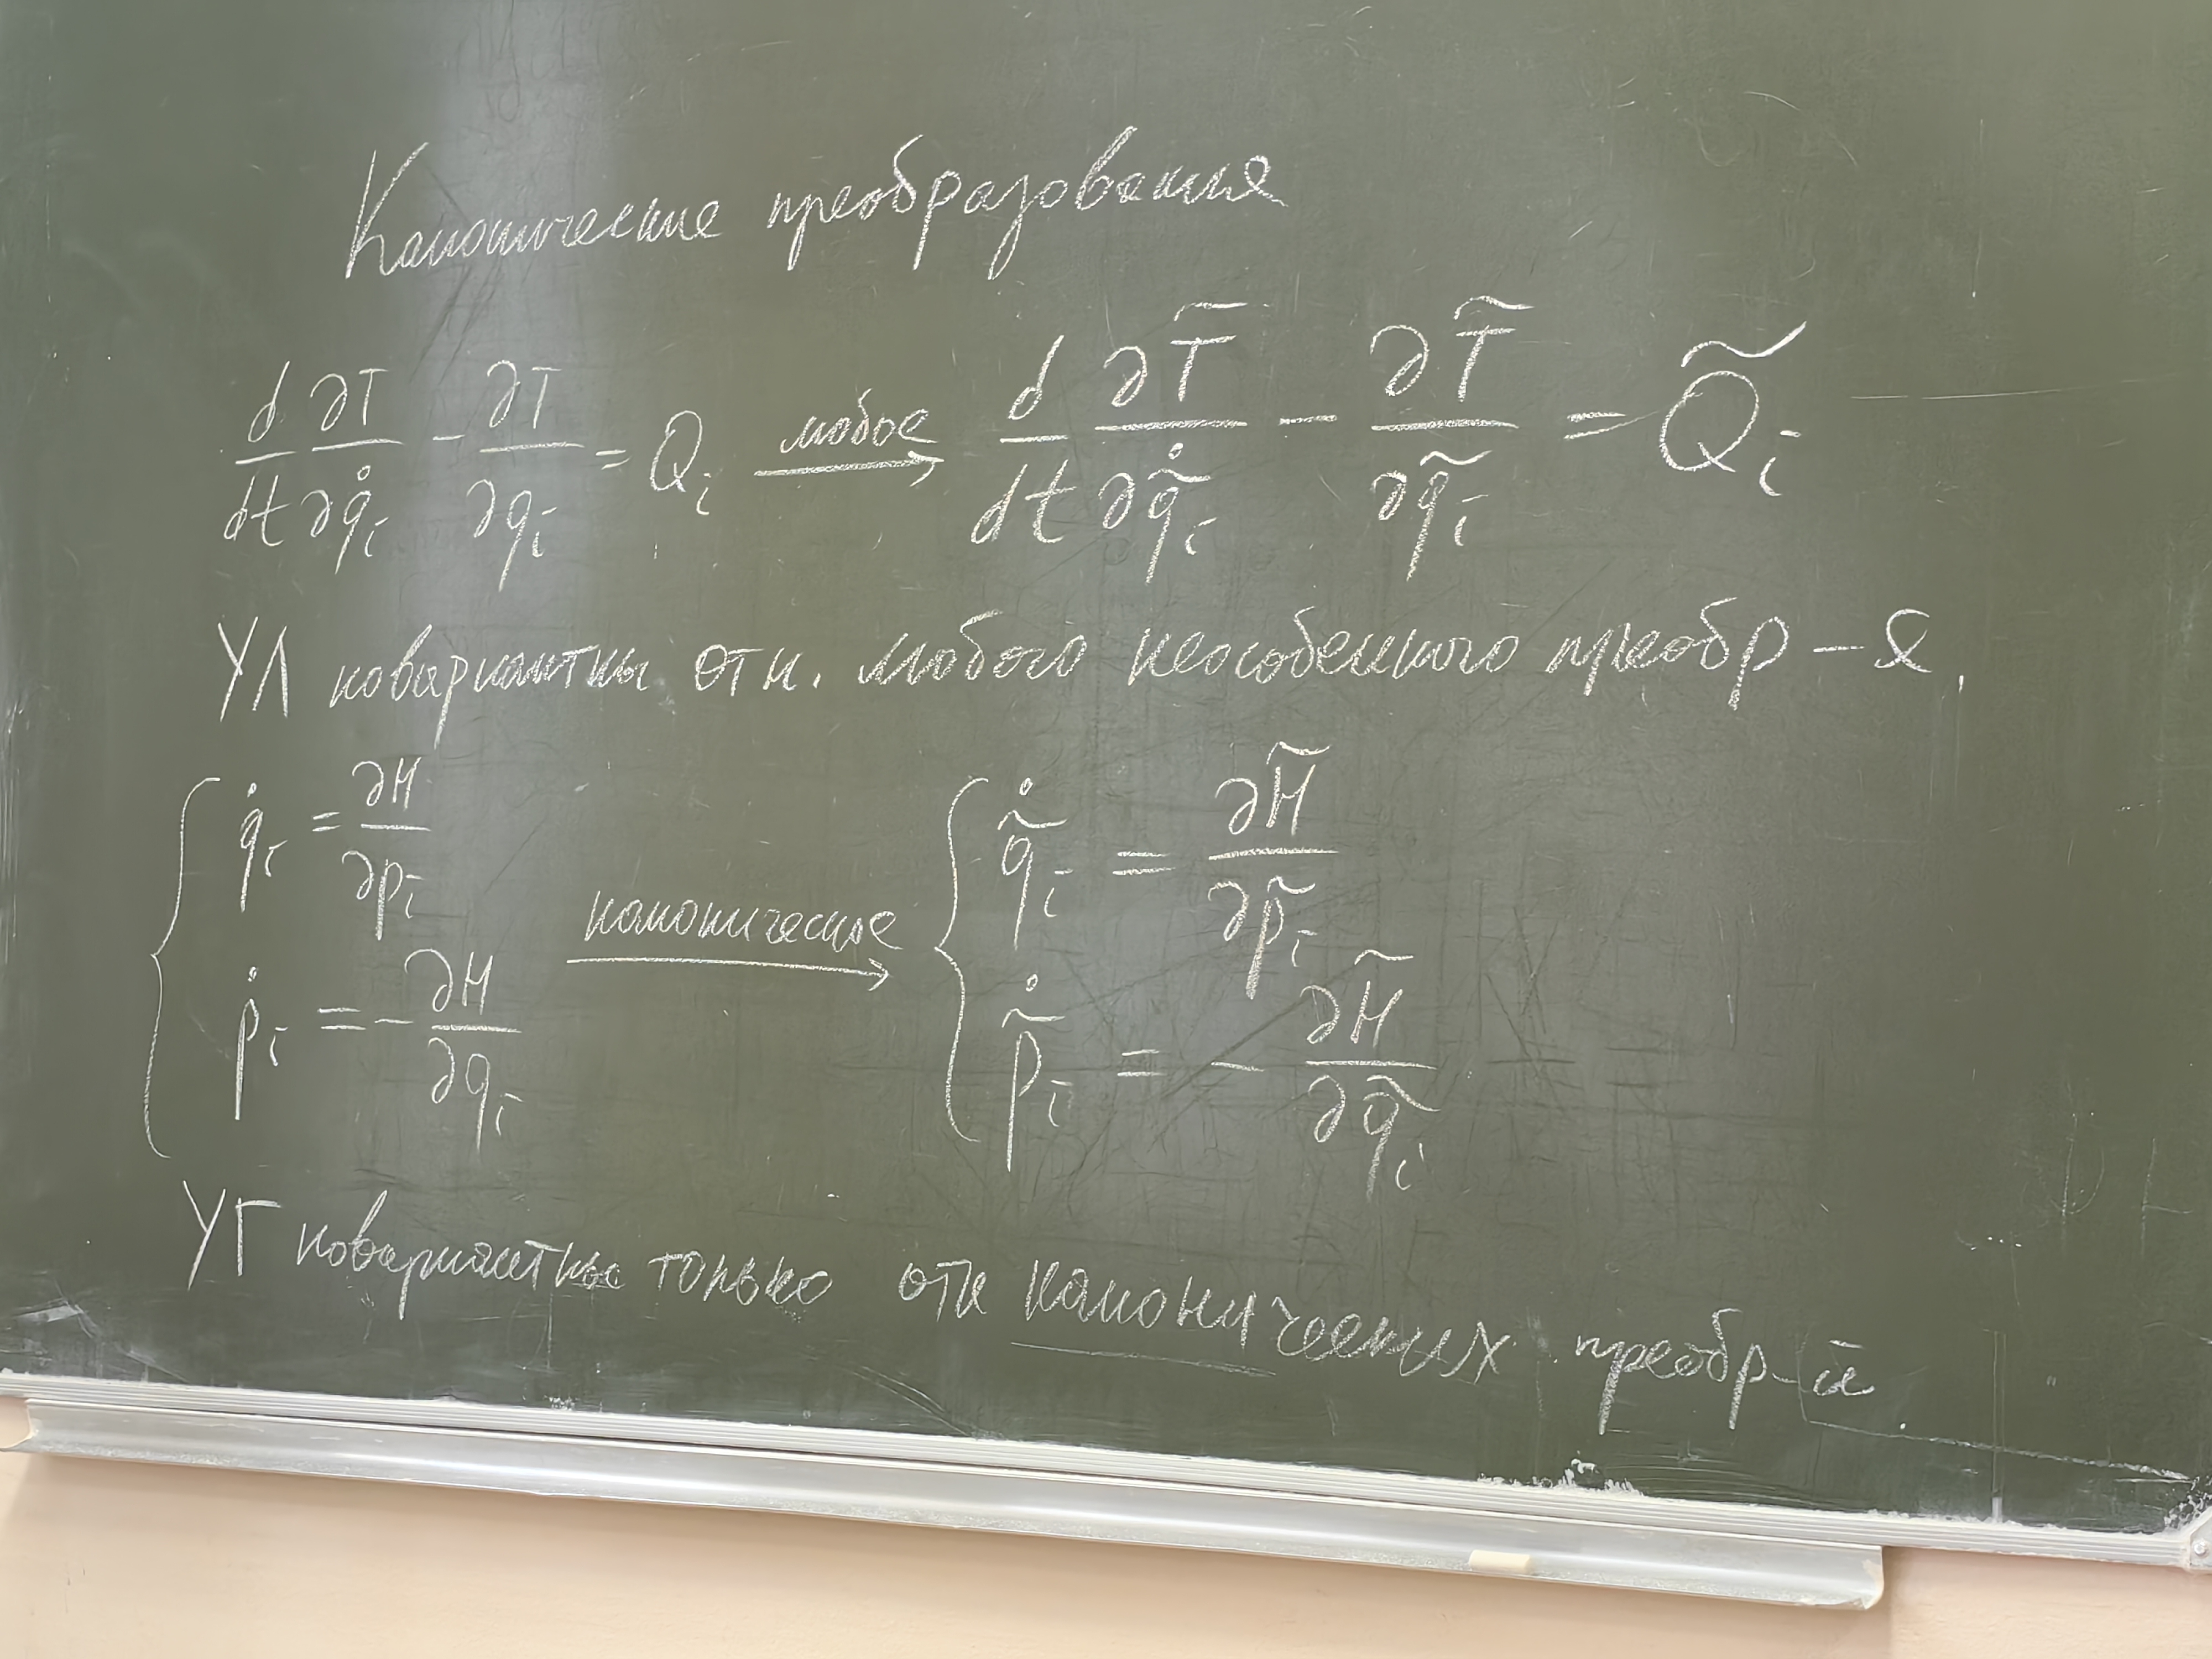 Канонические преобразования
d/dt ∂T/∂q̇ᵢ - ∂T/∂qᵢ = Qᵢ —любое→ d/dt ∂T̃/∂q̃̇ᵢ - ∂T̃/∂q̃ᵢ = Q̃ᵢ
УЛ ковариантны отн. любого неособенного преобр-я.
{ q̇ᵢ = ∂H/∂pᵢ —каноническое→ { q̃̇ᵢ = ∂H̃/∂p̃ᵢ
ṗᵢ = - ∂H/∂qᵢ p̃̇ᵢ = - ∂H̃/∂q̃ᵢ
УГ ковариантны только отн канонических преобр-й.